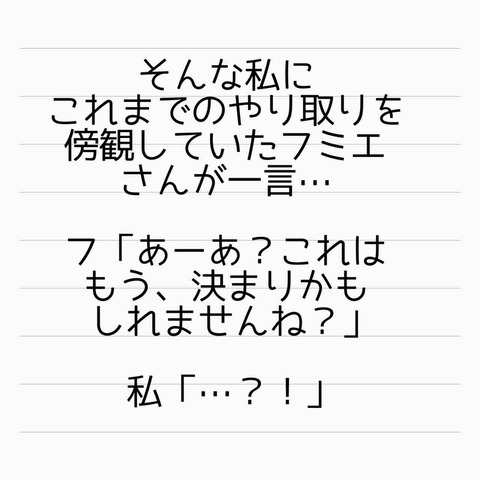 そんな私に
これまでのやり取りを
傍観していたフミエ
さんが一言…
フ「あーあ？これは
もう、決まりかも
しれませんね？」
私「…？！」